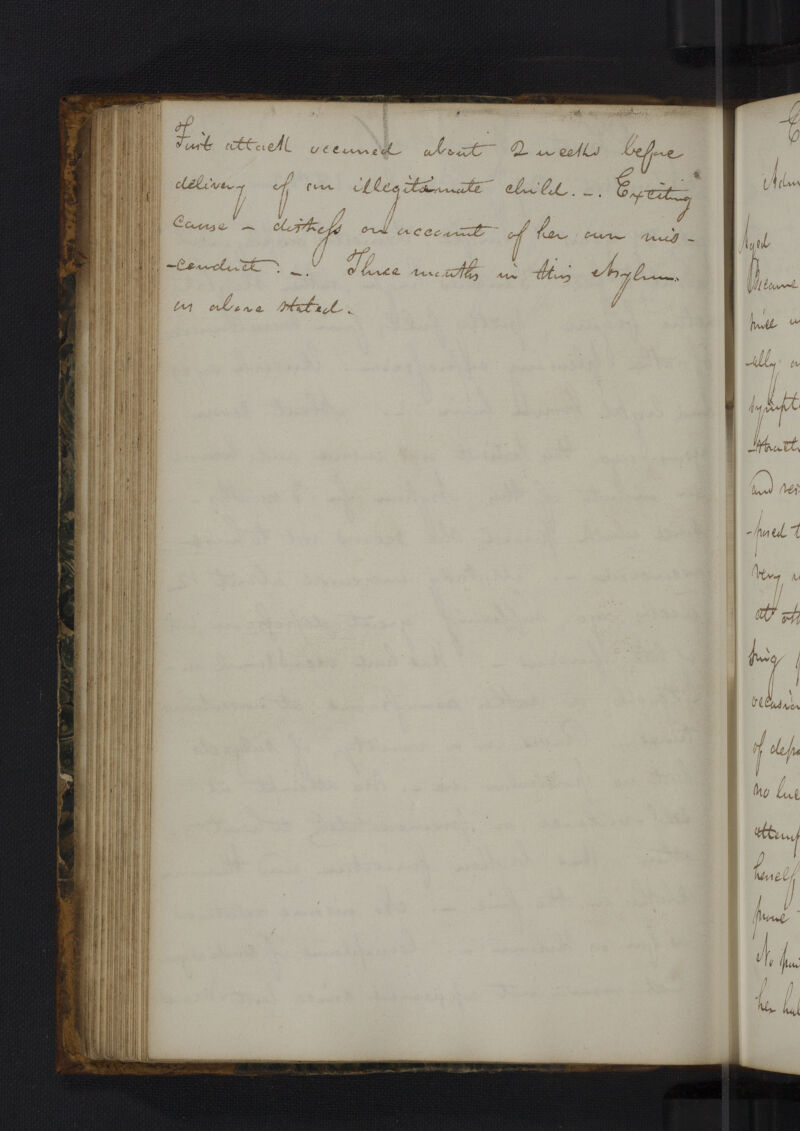 First attack occurred about 2 weeks before
delivery of an illegitimate child. -. Exciting
cause - distress on account of her own mis-
-conduct. -. Three months in this Asylum.
as above stated.
Aged
Became
-ally
sympt
and
-posed t
very
at
of
no
attemp
herself
No
her